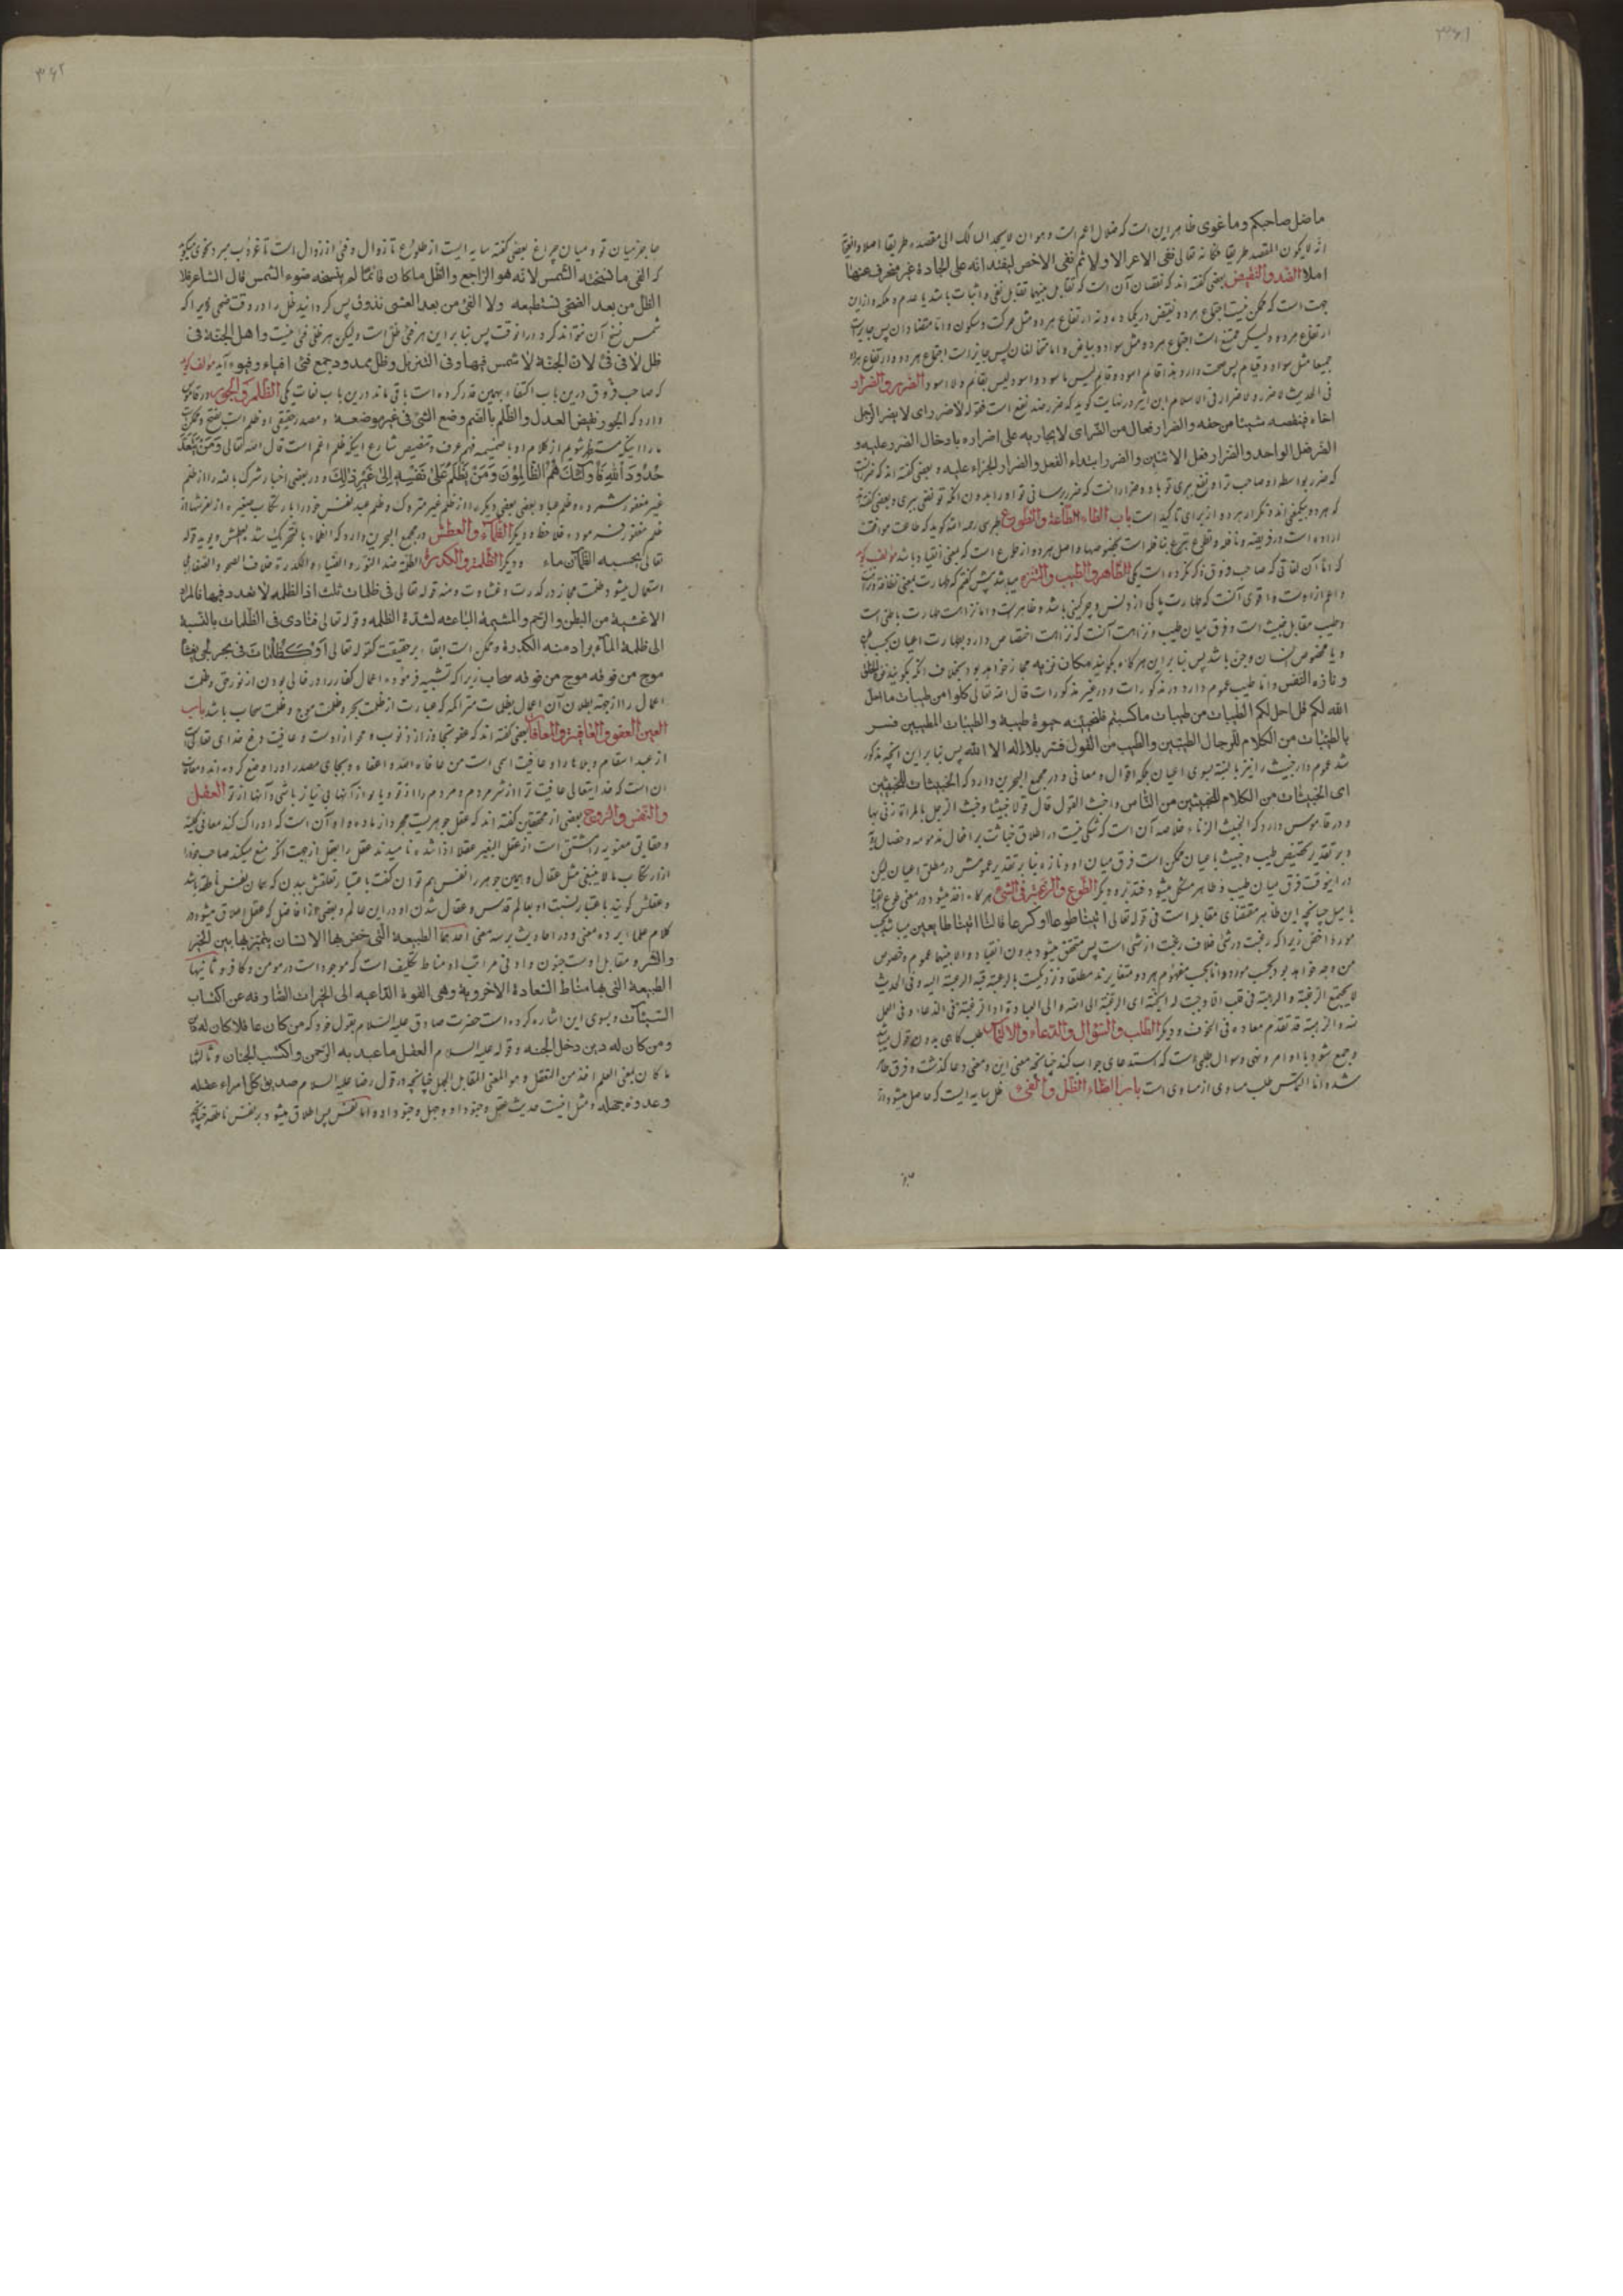 ۳۶۱
ما ضل صاحبکم وما غوی ظاهر این است که ضلال اعم است وهو ان لا یجد السالک الی مقصده طریقا اصلا
انه لا یکون المقصد طریقا فکانه تعالی نفی الاعم اولا ثم نفی الاخص لیفید انه علی الجادة غیر منحرف عنها
اصلا الضد والنقیض بعضی گفته اند که نقیضان آن است که تقابل بینهما تقابل نفی واثبات باشد یا عدم وملکه وازاین
جهت است که ممکن نیست اجتماع هر دو نقیض در یکماده ونه ارتفاع هر دو مثل حرکت وسکون واما متضادان پس جایز است
ارتفاع هر دو ولیکن ممتنع است اجتماع هر دو مثل سواد وبیاض واما متخالفان پس جایز است اجتماع هر دو وارتفاع
جمیعا مثل سواد وقیام پس صحت دارد هذا قائم اسود وقائم لیس باسود واسود لیس بقائم ولا اسود الضرر والضرار
فی الحدیث لا ضرر ولا ضرار فی الاسلام ابن اثیر در نهایت گوید که ضرر ضد نفع است فقوله لا ضرر ای لا یضر الرجل
اخاه فینقصه شیئا من حقه والضرار فعال من الضر ای لا یجازیه علی اضراره بادخال الضرر علیه و
الضرر فعل الواحد والضرار فعل الاثنین والضرر ابتداء الفعل والضرار الجزاء علیه وبعضی گفته اند که ضرر آنست
که ضرر بواسطه او صاحب ترا ونفع بری تو باو وضرار آنست که ضرر برسانی تو او را بدون آنکه تو نفعی بری وبعضی گفته
که هر دو بیک معنی اند وتکرار هر دو از برای تاکید است باب الطاء الطاعة والتطوع طبرسی رحمه الله گوید که طاعت موافقت
اراده است در فریضه ونافله وتطوع تبرع بنافله است بخصوصها واصل هر دو از طوع است که بمعنی انقیاد باشد مؤلف گوید
که اما آن لغاتی که صاحب فروق ذکر نکرده است یکی الطاهر والطیب والنزه میباشد پیش گفتم که طهارت بمعنی نظافة
واعم از اوست واقوی آنست که طهارت پاکی از دنس وچرکینی باشد وظاهریست واما نزاهت طهارت باطنی است
وطیب مقابل خبیث است وفرق میان طیب ونزاهت آنست که نزاهت اختصاص دارد بطهارت اعیان بحسب
ویا مخصوص انسان وجن باشد پس بنا بر این هر گاه بگویند مکان نزیه مجاز خواهد بود بخلاف آنکه بگویند
ونازه النفس واما طیب عموم دارد در مذکورات ودر غیر مذکورات قال الله تعالی کلوا من طیبات ما احل
الله لکم قل احل لکم الطیبات من طیبات ما کسبتم فلنحیینه حیوة طیبة والطیبات للطیبین فسر
بالطیبات من الکلام للرجال الطیبین والطیب من القول فسر بلا اله الا الله پس بنا بر این آنچه مذکور
شد عموم دارد خبیث را نیز بالنسبه بسوی اعیان بلکه اقوال ومعانی ودر مجمع البحرین دارد که الخبیثات للخبیثین
ای الخبیثات من الکلام للخبیثین من الناس واخبث القول قال قولا خبیثا وخبث الرجل بالمراة زنی بها
ودر قاموس دارد که الخبث الزناء خلاصه آن است که شکی نیست در اطلاق خباثت بر افعال مذمومه وخصال
وبر تقدیر تخصیص طیب وخبیث باعیان ممکن است فرق میان او ونازه بنا بر تقدیر عمومش در مطلق اعیان لیکن
در اینوقت فرق میان طیب وطاهر مشکل میشود فتدبره ودیگر الطوع والرغبة فی الشئ هر گاه اخذ میشود در معنی طوع
بامیل چنانچه این ظاهر مقتضای مقابله است فی قوله تعالی ائتیا طوعا او کرها قالتا اتینا طائعین
موردا اخص زیرا که رغبت در شئ خلاف رغبت از شئ است پس متحقق میشود بدون انقیاد والا بینهما عموم وخصوص
من وجه خواهد بود بحسب مورد واما بحسب مفهوم هر دو متغایرند مطلقا ونزدیکست بالرغبة فیه الرغبة الیه وفی الحدیث
لا یجتمع الرغبة والرهبة فی قلب الا وجبت له الجنة ای الرغبة الی الله والی العبادة او الرغبة فی الدعاء وفی العمل
نیه والرهبة قد تقدم معناه فی الخوف ودیگر الطلب والسؤال والدعاء والالتماس طلب گاهی بدون قول
وجمع بشود با اوامر ونهی وسوال طلبی است که استدعای جواب کند چنانچه معنی این ومعنی دعا گذشت وفرق
شده اما التماس طلب مساوی از مساوی است باب الظاء الظل والفئ ظل سایه ایست که حاصل میشود از
۳۶۲
حاجز میان تو ومیان چراغ بعضی گفته سایه ایست از طلوع تا زوال وفئ از زوال است تا غروب
که الفئ ما نسخته الشمس لانه هو الراجع والظل ما کان قائما لم ینسخه ضوء الشمس قال الشاعر فلا
الظل من بعد الضحی تستطیعه ولا الفئ من بعد العشی تذوق پس گردانید ظل را در وقت ضحی زیرا که
شمس نسخ آن نتواند کرد در آنوقت پس بنا بر این هر فئ ظل است ولیکن هر ظل فئ نیست واهل الجنة فی
ظل لا فی فئ لان الجنة لا شمس فیها وفی التنزیل وظل ممدود وجمع فئ افیاء وفیوء آمده مؤلف گوید
که صاحب فروق درین باب اکتفاء بهمین قدر کرده است باقی ماند درین باب لغات یکی الظلم والجور در قاموس
دارد که الجور نقیض العدل والظلم بالضم وضع الشئ فی غیر موضعه ومصدر حقیقی او ظلم است بفتح
ما را اینکه مستظهر شویم از کلام او با ضمیمه فهم عرف وتنصیص شارع اینکه ظلم اعم است قال الله تعالی وَمَنْ یَتَعَدَّ
حُدُودَ اللهِ فَأُولٰئِكَ هُمُ الظَّالِمُونَ وَمَنْ یَظْلِمُ عَلیٰ نَفْسِهِ اِلیٰ غَیْرِ ذٰلِكَ ودر بعضی اخبار شرک بالله را از ظلم
غیر مغفور شمرده وظلم عباد بعضی بعضی دیگر را از ظلم غیر متروک وظلم عبد نفس خود را بارتکاب صغیره از لغزشها از
ظلم مغفور فرموده فلاحظ ودیگر الظماء والعطش در مجمع البحرین دارد که الظماء بالتحریک شدة العطش ویؤیده قوله
تعالی یحسبه الظمآن ماء ودیگر الظلمة والکدرة الظلمة ضد النور والضیاء والکدرة خلاف الصحو والصفو
استعمال میشود ظلمت مجاز در کدرت وغشاوت ومنه قوله تعالی فی ظلمات ثلث اذ الظلمة لا ضدد فیها فالمراد
الاغشیة من البطن والرحم والمشیمة الباعثة لشدة الظلمة وقوله تعالی فنادی فی الظلمات بالنسبة
الی ظلمة الماء یراد منه الکدرة وممکن است ابقاء بر حقیقت کقوله تعالی اَوْ کَظُلُمَاتٍ فی بحر لجی یغشاه
موج من فوقه موج من فوقه سحاب زیرا که تشبیه فرموده اعمال کفار را در خالی بودن از نور حق وظلمت
اعمال را از جهة بطلان آن اعمال بظلمات متراکمه که عبارت از ظلمت بحر وظلمت موج وظلمت سحاب باشد باب
العین العفو والعافیة والمعافاة بعضی گفته اند که عفو تجاوز از ذنوب ومحو از اوست وعافیت دفع خدای تعالی است
از عبد اسقام وبلاها را وعافیت اسمی است من عافاه الله واعفاه وبجای مصدر او را وضع کرده اند ومعافات
آن است که خدایتعالی عافیت ترا از شر مردم ومردم را از تو وبا تو از آنها بی نیاز باشی وآنها از تو العقل
والنفس والروح بعضی از محققین گفته اند که عقل جوهریست مجرد از ماده واو آن است که ادراک کند معانی کلیه
وحقایق معنویه را مشتق است از عقل البعیر عقلا اذا شده نامیدند عقل را بعقل از جهت آنکه منع میکند صاحب خود را
از ارتکاب ما لا ینبغی مثل عقال وهمین جوهر را نفس هم توان گفت باعتبار تعلقش ببدن که همان نفس ناطقه باشد
وعقلش گویند باعتبار نسبت او بعالم قدس وعقال شدن او در این عالم وبعضی از افاضل که عقل اطلاق میشود در
کلام علماء بر ده معنی ودر احادیث بر سه معنی احدیها الطبیعة التی خص بها الانسان یتمیز بها بین الخیر
والشر ومقابل اوست جنون وادنی مراتب او مناط تکلیف است که موجود است در مومن وکافر وثانیها
الطبیعة التی بها مناط السعادة الاخرویة وهی القوة الداعیة الی الخیرات الصارفة عن اکتساب
السیئات وبسوی این اشاره کرده است حضرت صادق علیه السلام بقول خود که من کان عاقلا کان له دین
ومن کان له دین دخل الجنة وقوله علیه السلام العقل ما عبد به الرحمن واکتسب الجنان وثالثها
ما کان بمعنی العلم اخذ من التعقل وهو المعنی المقابل للجهل چنانچه در قول رضا علیه السلام صدیق کل امرء عقله
وعدوه جهله ومثل اینست حدیث عقل وجنود او وجهل وجنود او واما نفس پس اطلاق میشود بر نفس ناطقه چنانچه